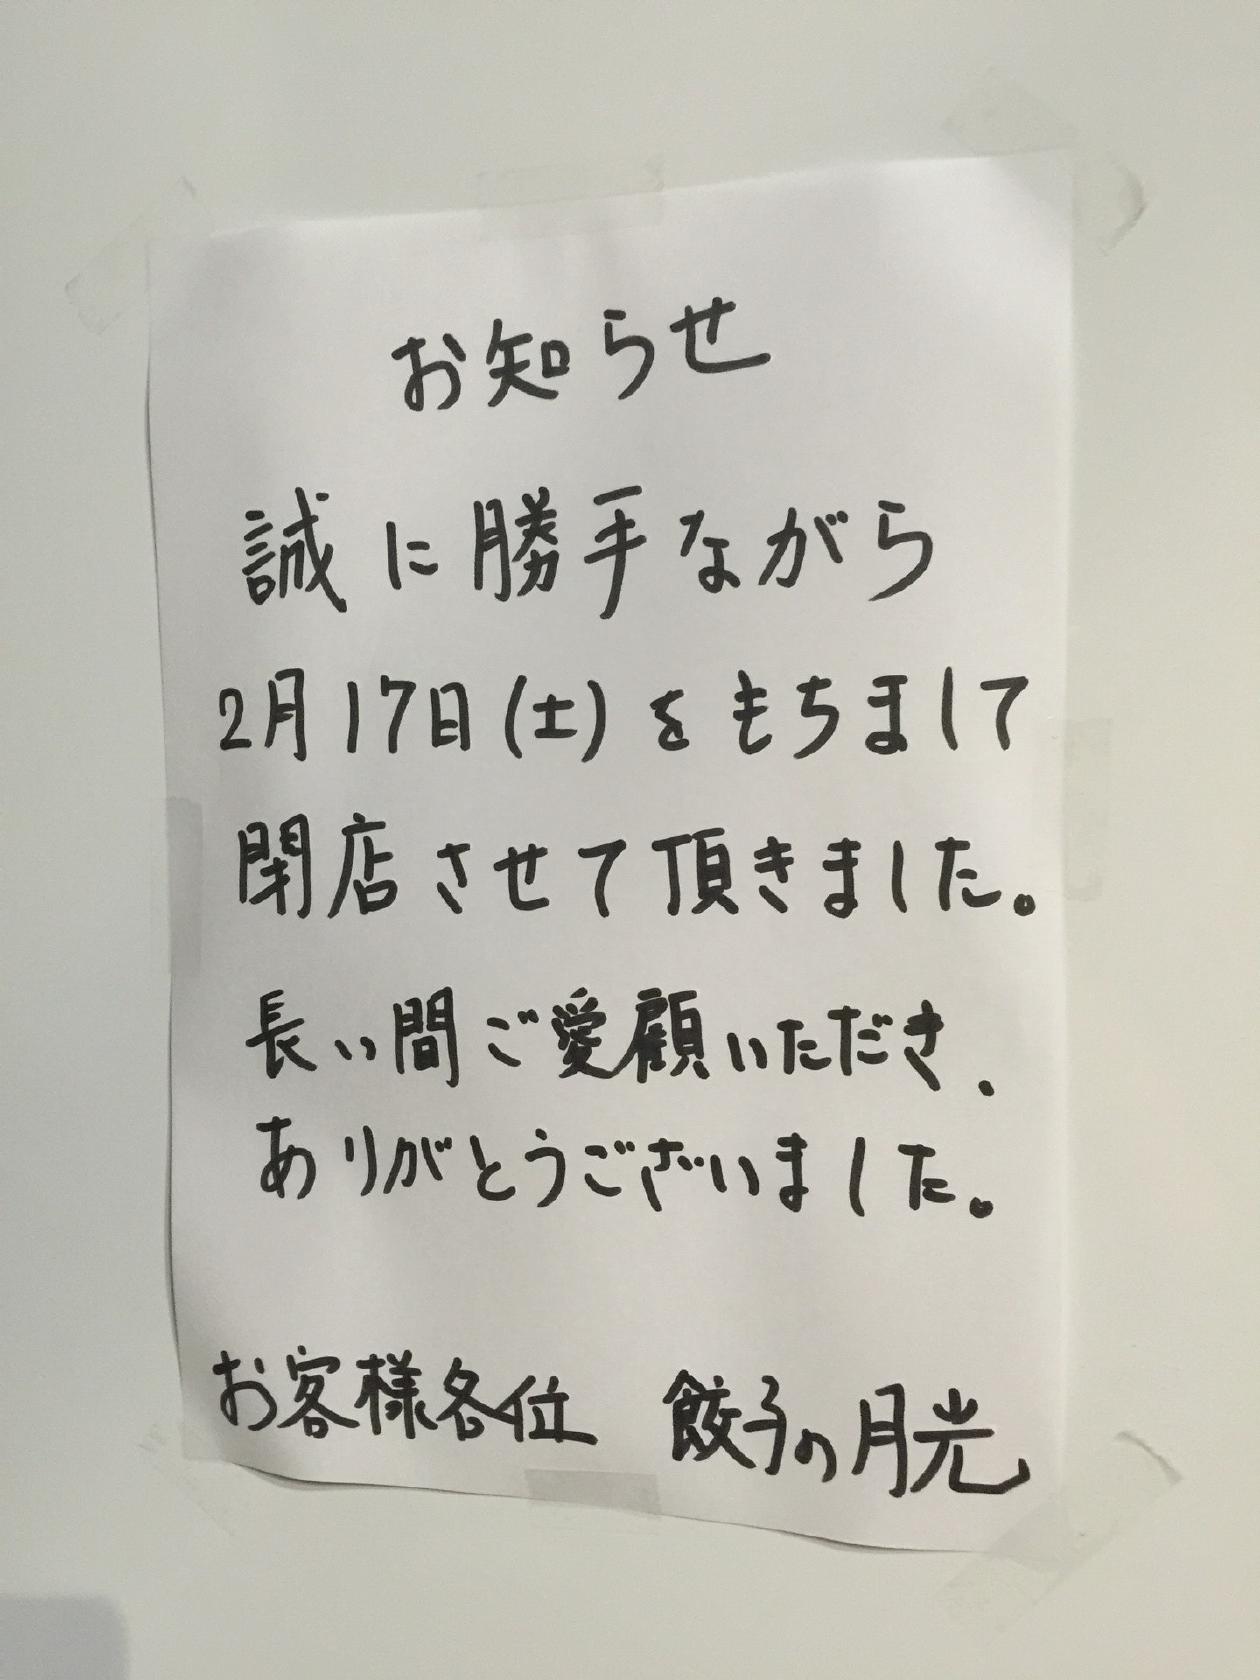 お知らせ
誠に勝手ながら
2月17日(土)をもちまして
閉店させて頂きました。
長い間ご愛顧いただき、
ありがとうございました。
お客様各位 餃子の月光